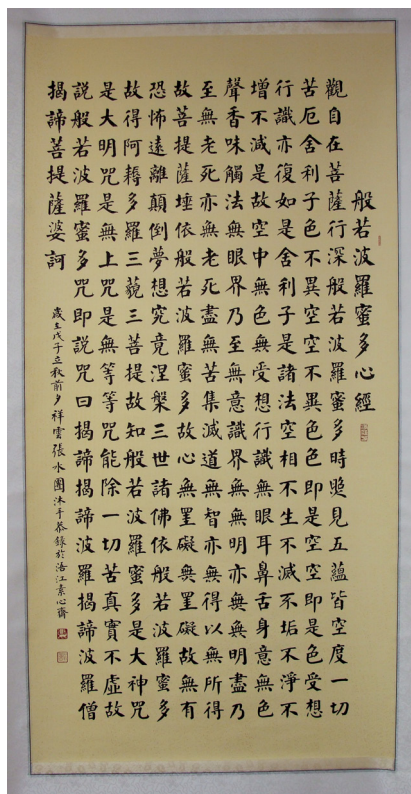 般若波羅蜜多心經
觀自在菩薩行深般若波羅蜜多時照見五蘊皆空度一切
苦厄舍利子色不異空空不異色色即是空空即是色受想
行識亦復如是舍利子是諸法空相不生不滅不垢不淨不
增不減是故空中無色無受想行識無眼耳鼻舌身意無色
聲香味觸法無眼界乃至無意識界無無明亦無無明盡乃
至無老死亦無老死盡無苦集滅道無智亦無得以無所得
故菩提薩埵依般若波羅蜜多故心無罣礙無罣礙故無有
恐怖遠離顛倒夢想究竟涅槃三世諸佛依般若波羅蜜多
故得阿耨多羅三藐三菩提故知般若波羅蜜多是大神咒
是大明咒是無上咒是無等等咒能除一切苦真實不虛故
說般若波羅蜜多咒即說咒曰揭諦揭諦波羅揭諦波羅僧
揭諦菩提薩婆訶
歲在戊子立秋前夕祥雲張水團沐手恭錄於浯江素心齋